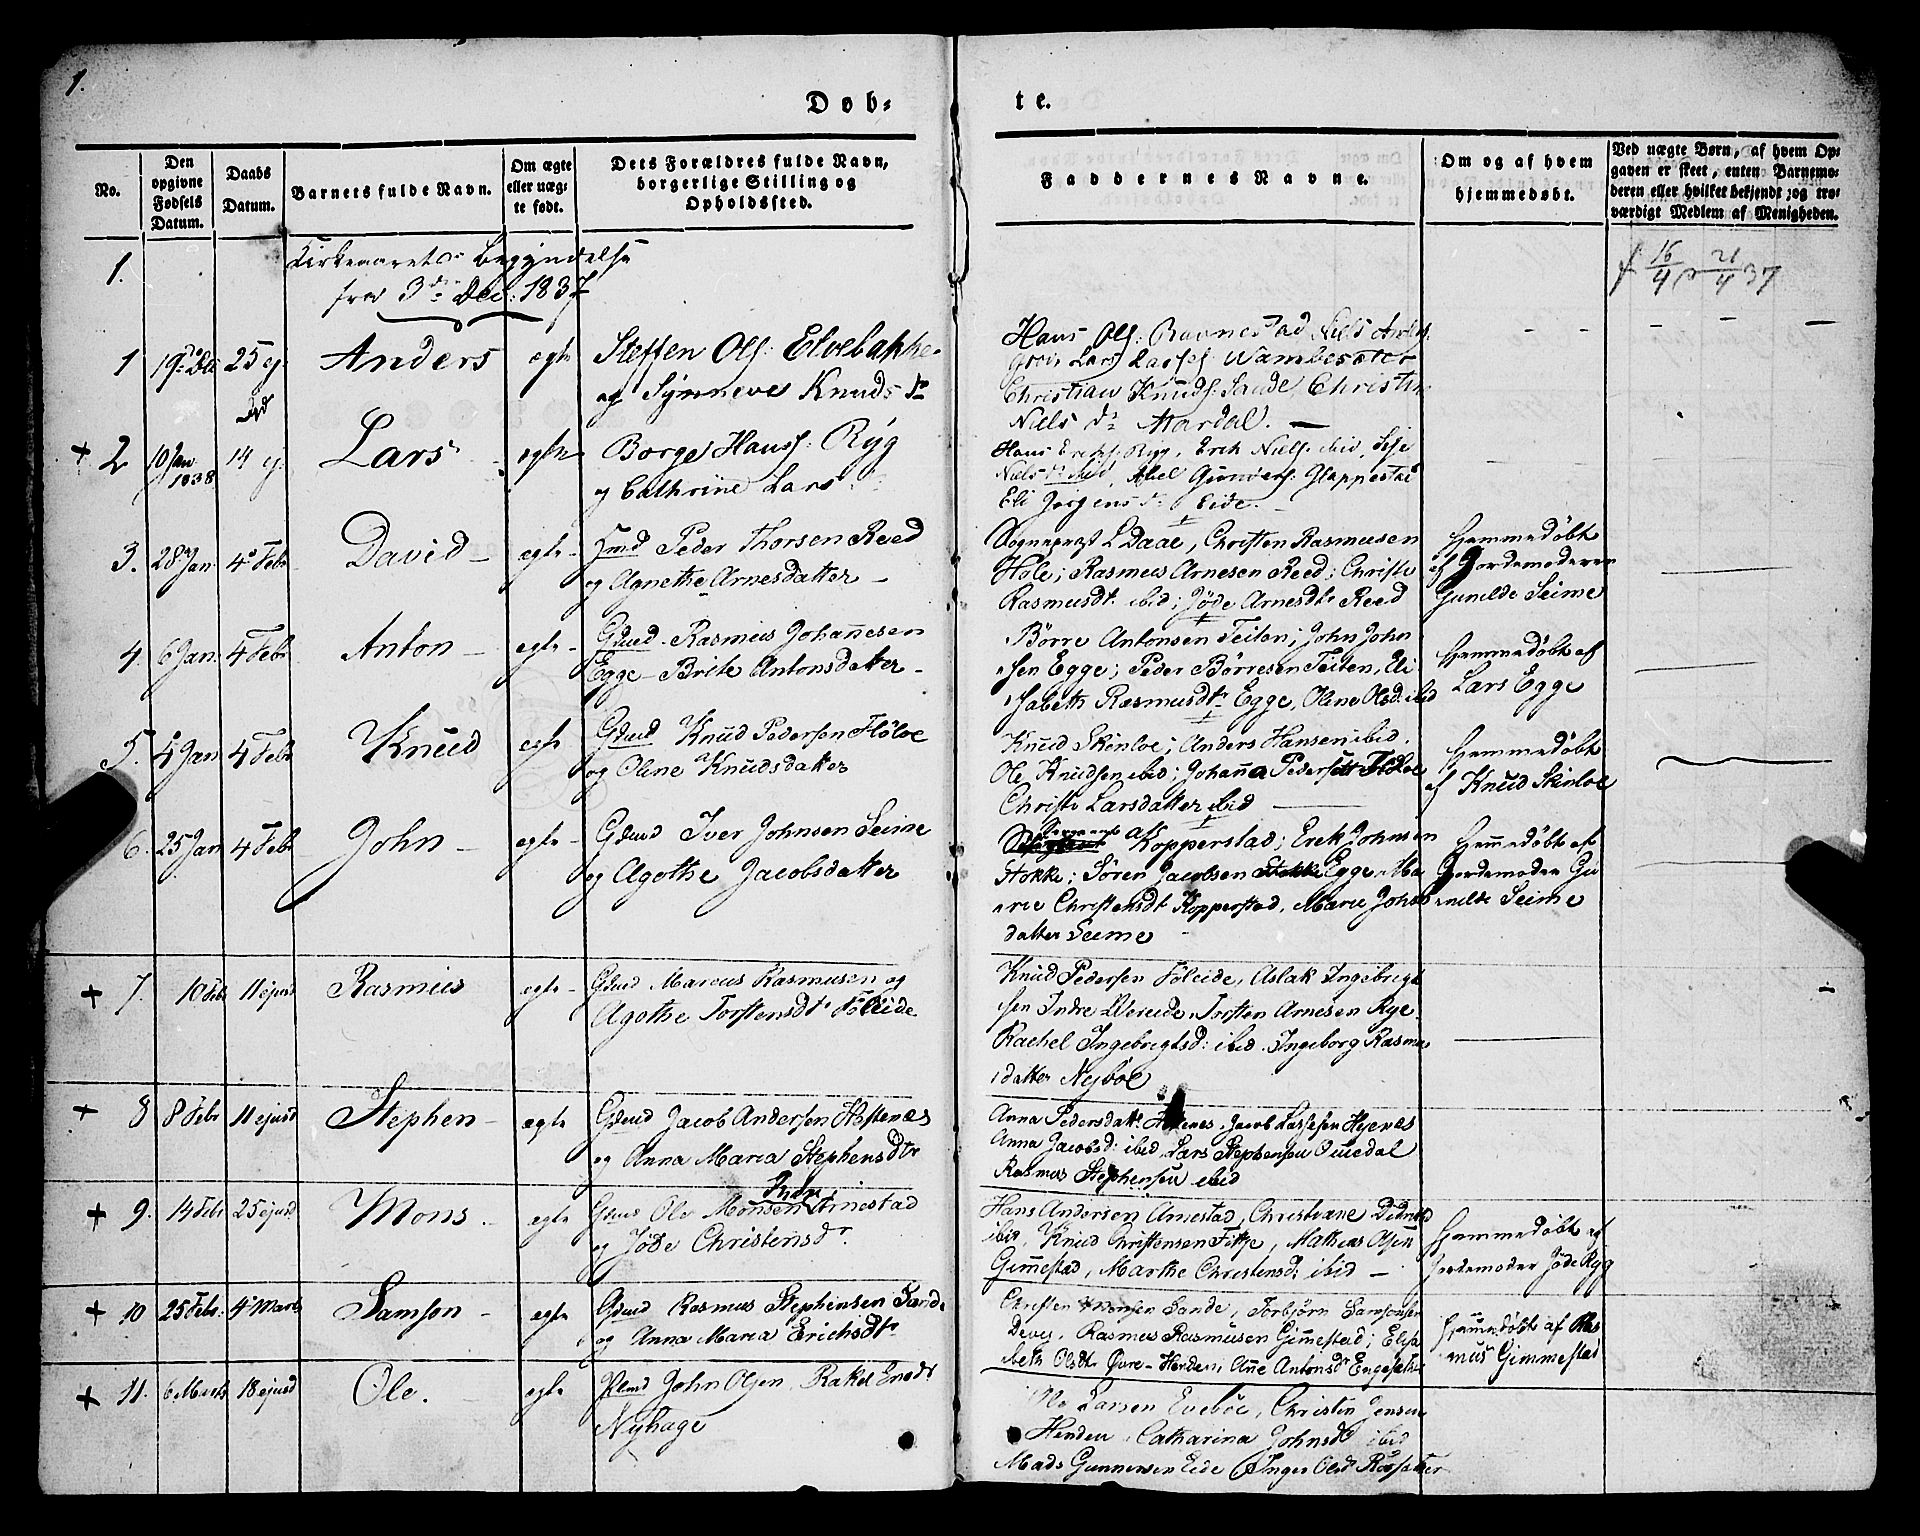 1.
Døb-
te.
No.
Den opgivne Fødsels Datum.
Daabs Datum.
Barnets fulde Navn.
Om ægte eller uæg-te født.
Dets Forældres fulde Navn, borgerlige Stilling og Opholdssted.
Faddernes Navne.
Om og af hvem hjemmedøbt.
Ved uægte Børn, af hvem Op-gaven er skeet, enten Barnemo-deren eller hvilket bekjendt, og tro-værdigt Medlem af Menigheden.
1.
Kirkeaarets Begyndelse
fra 3die Dec: 1837
16/4 21/4 37
1 19de Dec 25 ej. Anders egte
Steffen Ols: Elvebakke
og Synneve Knuds dr
Hans Ols: Ravnestad Niels Anders
Lars Lasses: Wambesæter
Christian Knuds: Sande, Christin
Niels dr Aardal.
+ 2 10 Jan 1838 14 ej. Lars egte
Borge Hanss: Ryg
og Cathrine Lars
Hans Erichs: Ryg, Erik Niels. ibid,
Niels dr ibid, Abel Gunders: Gloppestad
Eli Jørgens dr Eide.
3. 28 Jan 4 Febr David egte
Hmd Peder Thorsen Reed
og Agnethe Arnesdatter
Sogneprest L Daae, Christen Rasmusen
Hole; Rasmus Arnesen Reed; Christi
Rasmusdt. ibid; Jøde Arnesdtr Reed
Hjemmedøbt
af Jordemoderen
Gunilde Seime
4. 6 Jan. 4 Febr Anton egte
Gdmd Rasmus Johanesen
Egge Brite Antonsdatter
Børre Antonsen Teiten; John John
sen Egge; Peder Børresen Teiten, Eli
sabeth Rasmusdtr Egge, Oline Olsd: ibid
Hjemmedøbt af
Lars Egge
5. 4 Jan 4 Febr Knud egte
Gdmd Knud Pedersen Fløloe
og Oline Knudsdatter
Knud Skinloe; Anders Hansen ibid.
Ole Knudsen ibid; Johanna Pedersdtr Fløloe
Christi Larsdatter ibid
Hjemmedøbt
af Knud Skinloe
6. 25 Jan 4 Febr John egte
Gdmd Iver Johnsen Seime
og Agothe Jacobsdatter
Kopperstad; Erek Johnsen
Stokke; Søren Jacobsen Egge, Ma
rie Christensdt Kopperstad, Marie Johns
datter Seime
Hjemmedøbt af
Jordemoder Gu
nilde Seime
+ 7. 10 Febr 11 ejusd Rasmus egte
Gdmd Marcus Rasmusen og
Agothe Torstensdtr Føleide
Knud Pedersen Føleide, Aslak Ingebrigt
sen Indre Wereide, Torsten Arnesen Rye
Rachel Ingebrigtsd: ibid. Ingeborg Rasmus
datter Nyboe
+ 8 8 Febr 11 ejusd Stephen egte
Gdmd Jacob Andersen Hestenæs
og Anna Maria Stephensdtr
Anna Pedersdatt. Jacob Lassesen Hyenæs
Anna Jacobsd: ibid, Lars Stephensen Ommedal
Rasmus Stephensen ibid
+ 9. 14 Febr 25 ejusd Mons egte
Indre
Gdmd Ole Monsen Arnestad
og Jøde Christensdr.
Hans Andersen Arnestad, Christiane Didriksd
ibid, Knud Christensen Fitje, Mathias Olsen
Gimmestad, Marthe Christensd: ibid
Hjemmedøbt af
Jordemoder Jøde Ryg
+ 10 25 Febr. 4 Marts Samson egte
Gdmd Rasmus Stephensen Sande
og Anna Maria Erichsdtr
Christen Monsen Sande, Torbjørn Samsonsen
Devig, Rasmus Rasmusen Gimmestad; Elisa
beth Olsdtr Øvre-Herden; Ane Antonsdtr Engesæter
Hjemmedøbt af Ras
mus Gimmestad
+ 11. 6 Marts 18 ejusd Ole. egte
Plmd John Olsen, Rakel Ensdt
Nyhage
Ole Larsen Evebøe, Christen Jensen
Henden, Catharina Johnsdt ibid
Mads Gunnersen Eide, Inger Olsdt